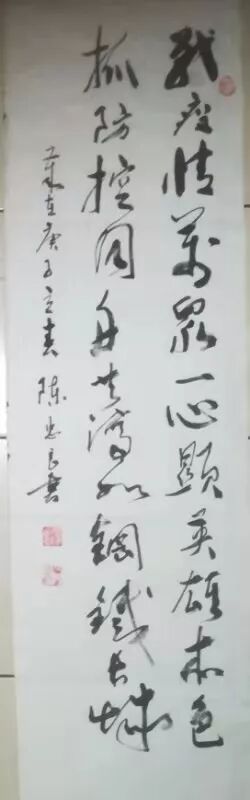 战疫情万众一心显英雄本色
抓防控同舟共济如钢铁长城
岁在庚子立春 陈忠良书